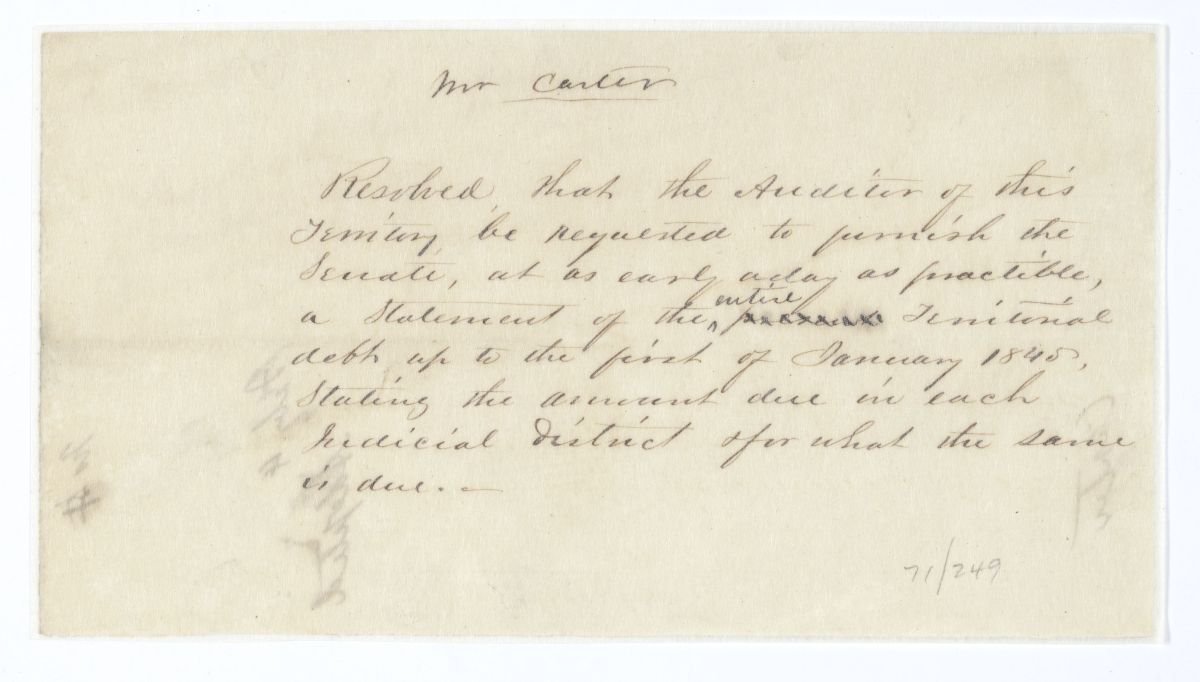 Mr Carter
Resolved, that the Auditor of this
Territory, be requested to furnish the
Senate, at as early a day as practible,
a Statement of the entire Territorial
debt up to the first of January 1845,
Stating the amount due in each
Judicial District & for what the same
is due. —
71/249